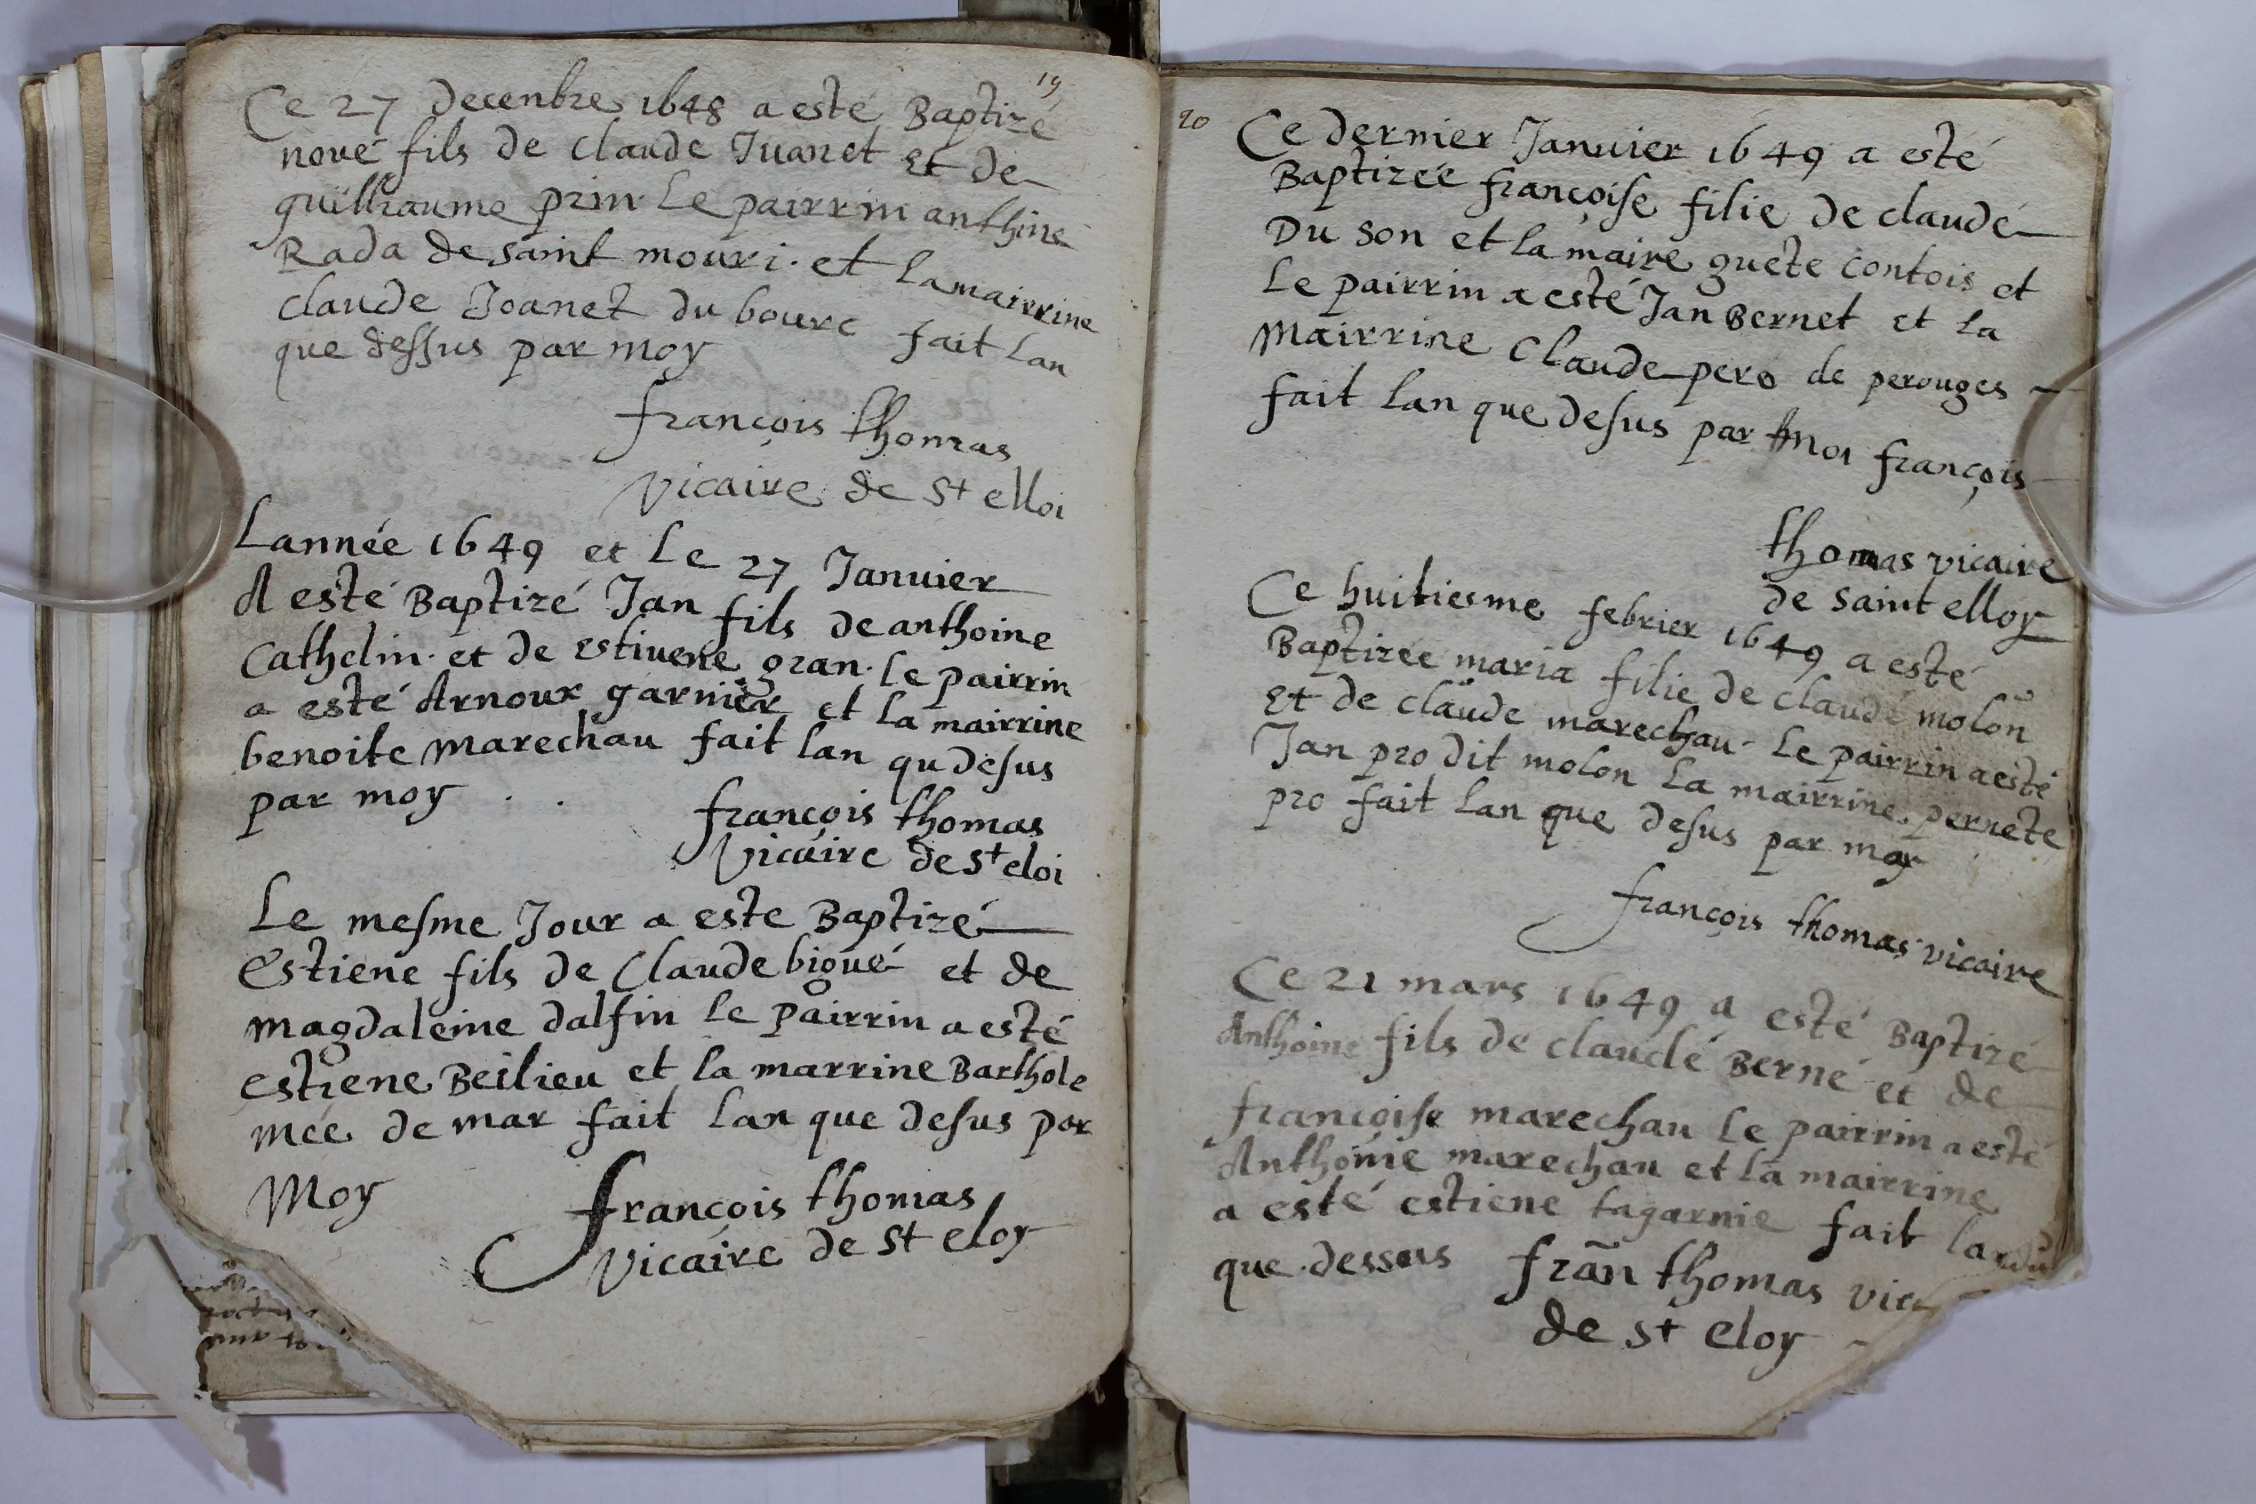 19
Ce 27 decenbre 1648 a esté Baptizé
nové fils de claude Juanet Et de
guilliaume prin. Le pairrin anthine
Rada de saint mouri. et la mairrine
claude Joanet du bourc fait lan
que dessus par moy
françois thomas
vicaire de St elloi
Lannée 1649 et Le 27 Januier
A esté Baptizé Jan fils de anthoine
Cathelin. et de estiuene gran. Le pairrin
a esté Arnoux garnier et la mairrine
benoite marechau fait lan qu desus
par moy . .
françois thomas
Vicaire de St eloi
Le mesme Jour a este Baptizé
Estiene fils de Claude bigué et de
magdaleine dalfin le pairrin a esté
estiene Beilieu et la marrine Barthole
mée de mar fait lan que desus par
Moy
françois thomas
vicaire de St eloy
20
Ce dernier Januier 1649 a esté
Baptizée françoise filie de claude
Du son et la maire guete contois et
Le pairrin a esté Jan Bernet et la
Mairrine Claude pero de perouges
fait lan que desus par moi françois
thomas vicaire
de saint elloy
Ce huitiesme febrier 1649 a esté
Baptizée maria filie de claude molon
Et de claude marechau. Le pairrin a esté
Jan pro dit molon La mairrine pernete
pro fait lan que desus par moy
françois thomas vicaire
Ce 21 mars 1649 a esté Baptizé
Anthoine fils de claude Berné et de
françoise marechau Le pairrin a esté
Anthonie marechau et la mairrine
a esté estiene tagarnie fait
que dessus frañ thomas
de St Eloy